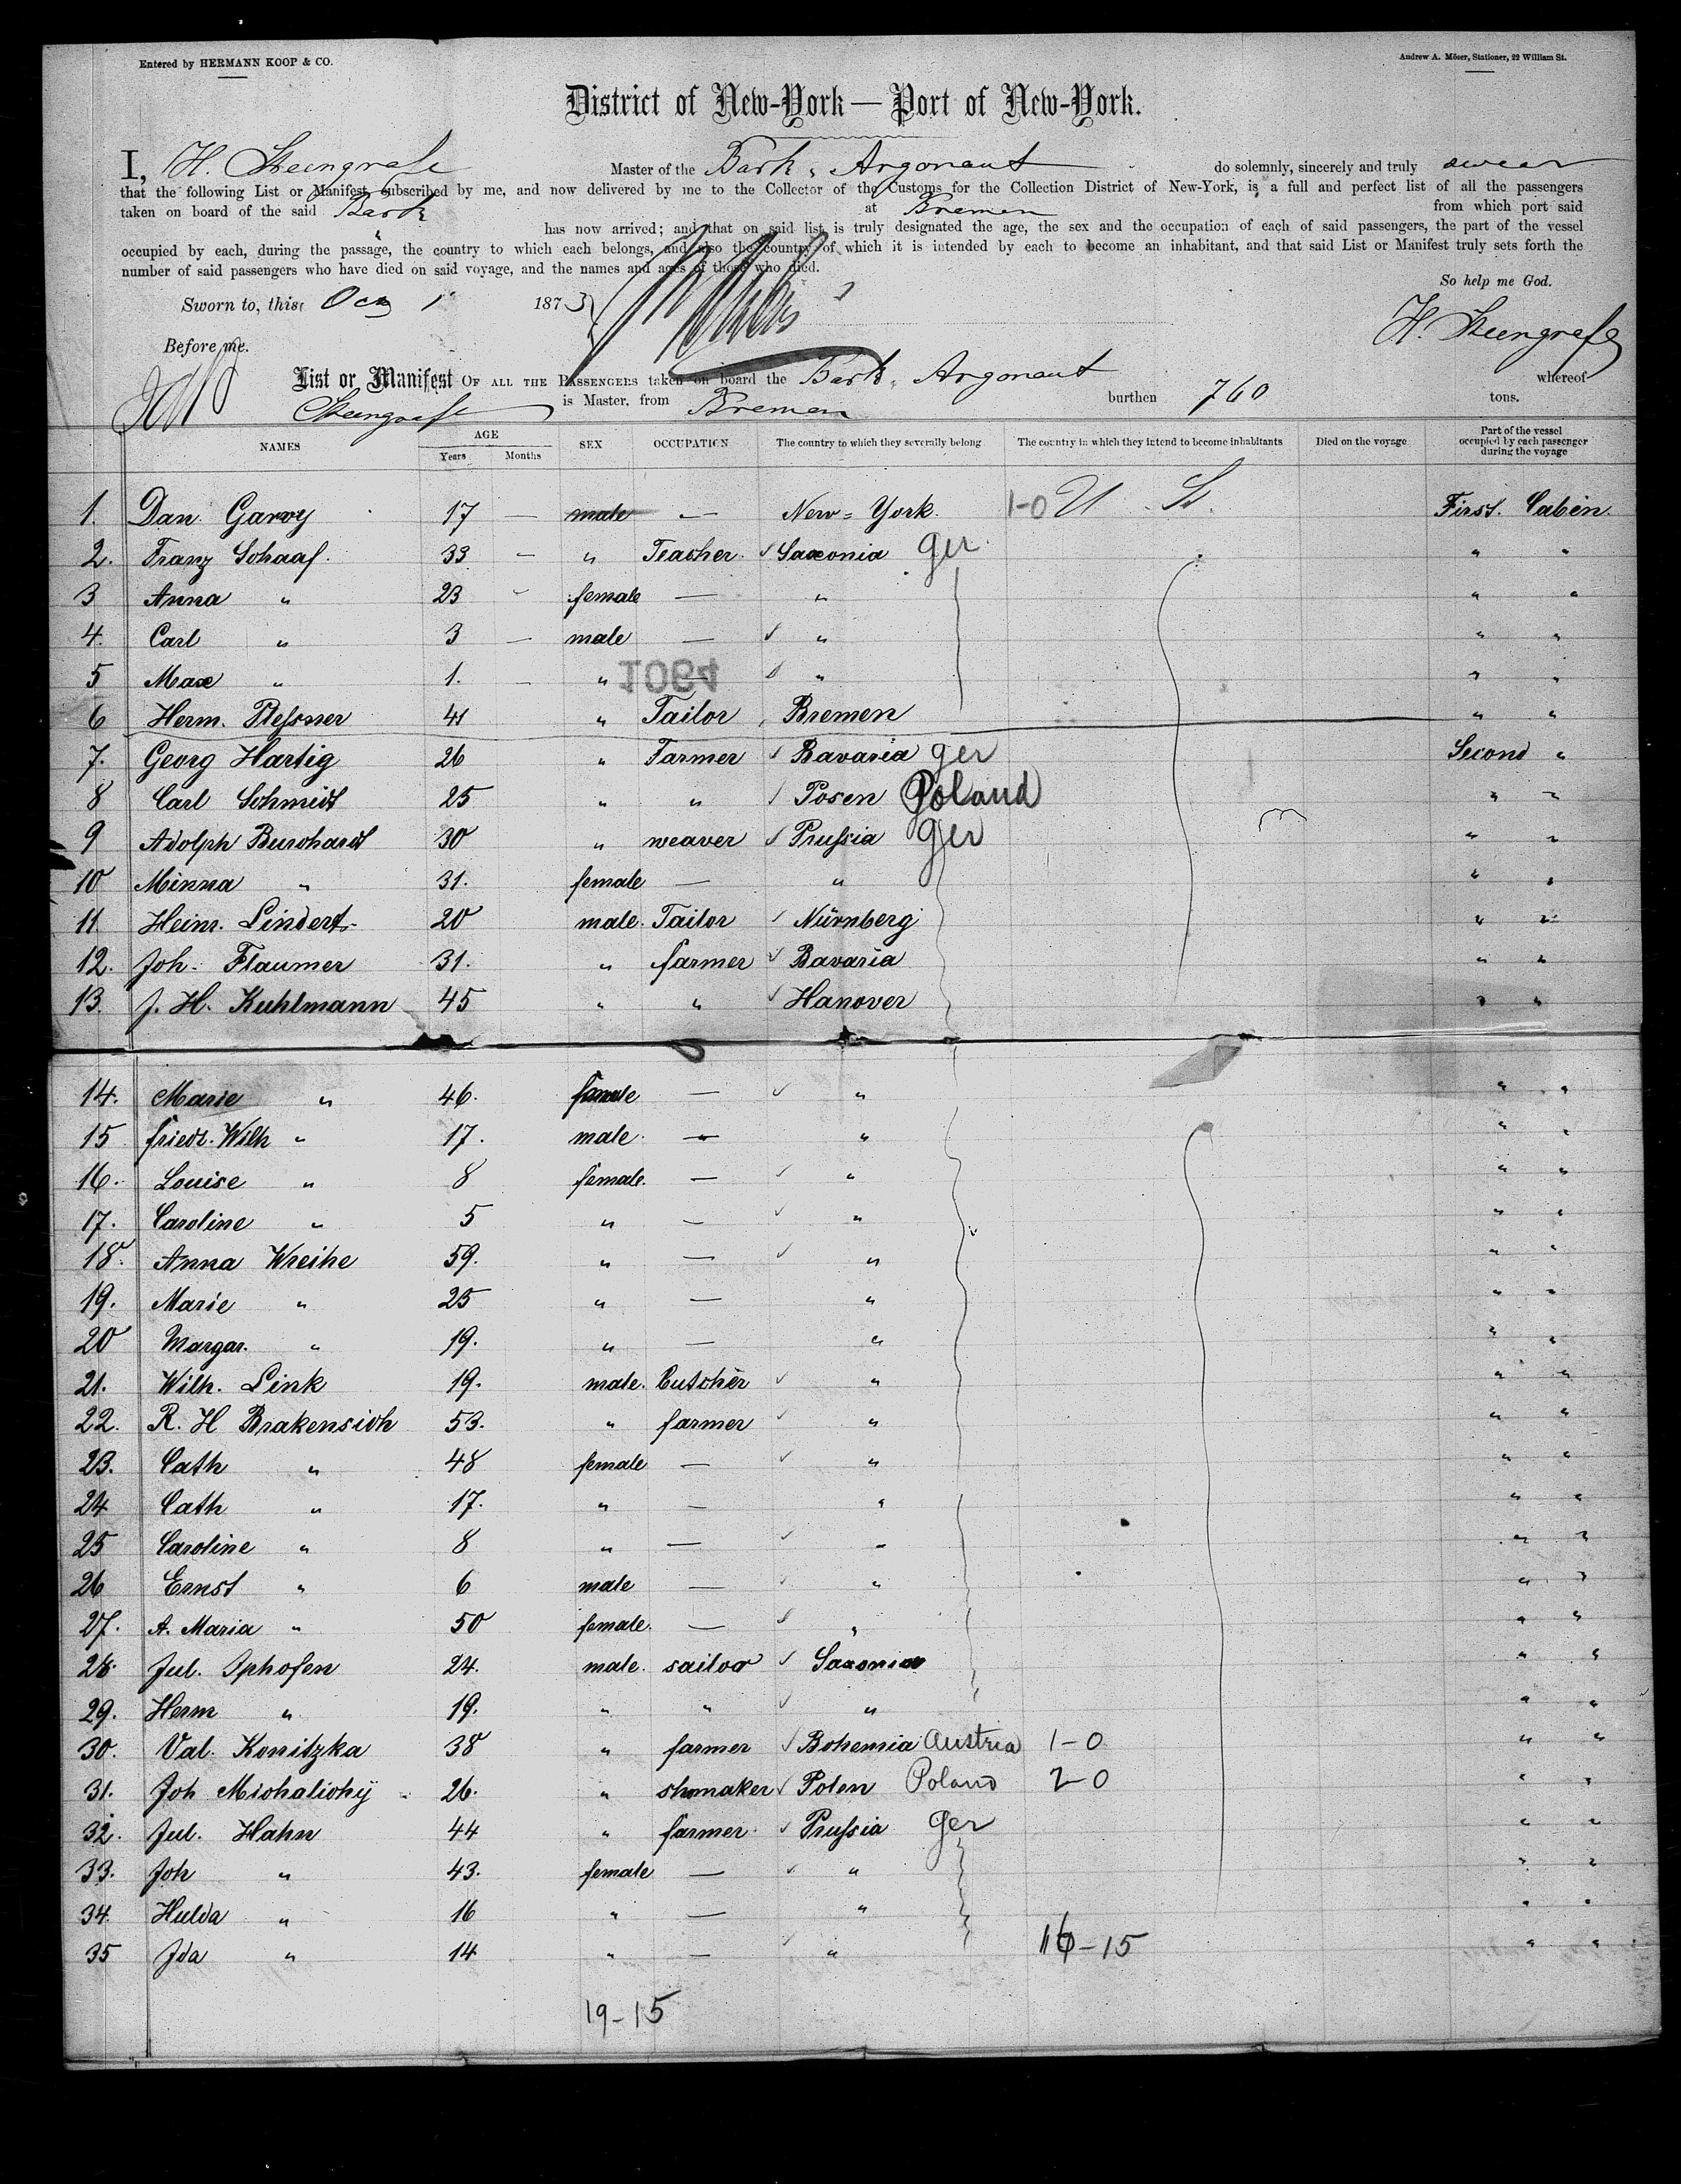 Entered by HERMANN KOOP & CO.
Andrew A. Möser, Stationer, 22 William St.
District of New-York — Port of New-York.
I, H. Steengrafe Master of the Bark „ Argonaut do solemnly, sincerely and truly swear
that the following List or Manifest, subscribed by me, and now delivered by me to the Collector of the Customs for the Collection District of New-York, is a full and perfect list of all the passengers
taken on board of the said Bark at Bremen from which port said
has now arrived; and that on said list is truly designated the age, the sex and the occupation of each of said passengers, the part of the vessel
occupied by each, during the passage, the country to which each belongs, and also the country of which it is intended by each to become an inhabitant, and that said List or Manifest truly sets forth the
number of said passengers who have died on said voyage, and the names and ages of those who died.
So help me God.
Sworn to, this 1 1873
H. Steengrafe
Before me.
List or Manifest OF ALL THE PASSENGERS taken on board the Bark „ Argonaut whereof
Steengrafe is Master, from Bremen burthen 760 tons.
NAMES AGE Years Months SEX OCCUPATION The country to which they severally belong The country in which they intend to become inhabitants Died on the voyage Part of the vessel occupied by each passenger during the voyage
1. Dan. Garvy 17 — male — New=York. 1-0 U. St. First. Cabin
2. Franz Schaaf. 33 — " Teacher. ✓ Saxonia ger " "
3 Anna " 23 - female — " " "
4. Carl " 3 — male — ✓ " " "
5 Max " 1. - " — ✓ " " "
1084
6 Herm. Pleſsner 41 " Tailor Bremen " "
7. Georg Hartig 26 " Farmer ✓ Bavaria ger Second "
8 Carl Schmidt 25 " " ✓ Posen Poland " "
9 Adolph Burchardt 30 " weaver ✓ Pruſsia ger " "
10 Minna " 31. female — " " "
11. Heinr. Lindert 20 male. Tailor ✓ Nürnberg " "
12. Joh. Flaumer 31. " farmer ✓ Bavaria " "
13. J. H. Kuhlmann 45 " " ✓ Hanover " "
14. Marie " 46. female — ✓ " " "
15 friedr. Wilh " 17. male. — " " "
16. Louise " 8 female. — ✓ " " "
17. Caroline " 5 " — ✓ " " "
18. Anna Wreihe 59. " — ✓ " " "
19. Marie " 25 " — " " "
20 Margar. " 19. " — " " "
21. Wilh. Link 19. male. Butcher ✓ " " "
22. R. H Brakensich 53. " farmer ✓ " " "
23. Cath " 48 female — ✓ " " "
24 Cath " 17. " — " " "
25 Caroline " 8 " — ✓ " " "
26 Ernst " 6 male — ✓ " " "
27. A. Maria " 50 female. — ✓ " " "
28. Jul. Iphofen 24. male. sailor ✓ Saxonia " "
29. Herm " 19. " " ✓ " " "
30. Val. Konitzka 38 " farmer ✓ Bohemia Austria 1-0 " "
31. Joh Michalichÿ 26. " shomaker ✓ Polen Poland 2-0 " "
32. Jul. Hahn 44 " farmer. ✓ Pruſsia ger " "
33. Joh " 43. female — ✓ " " "
34. Hulda " 16 " — " " "
35 Ida " 14 " — ✓ " 16-15 " "
19-15